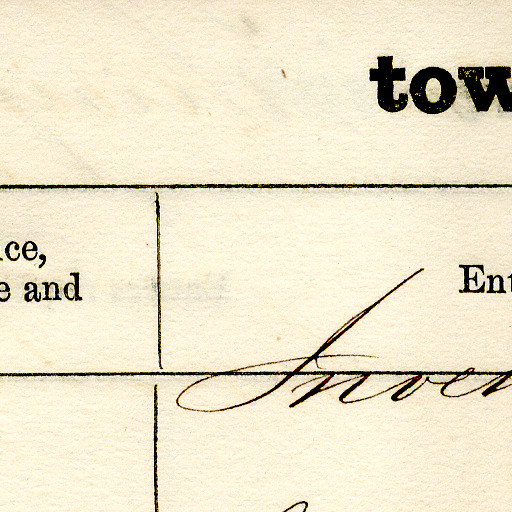 tow
ce,
e and
Ent
Inven